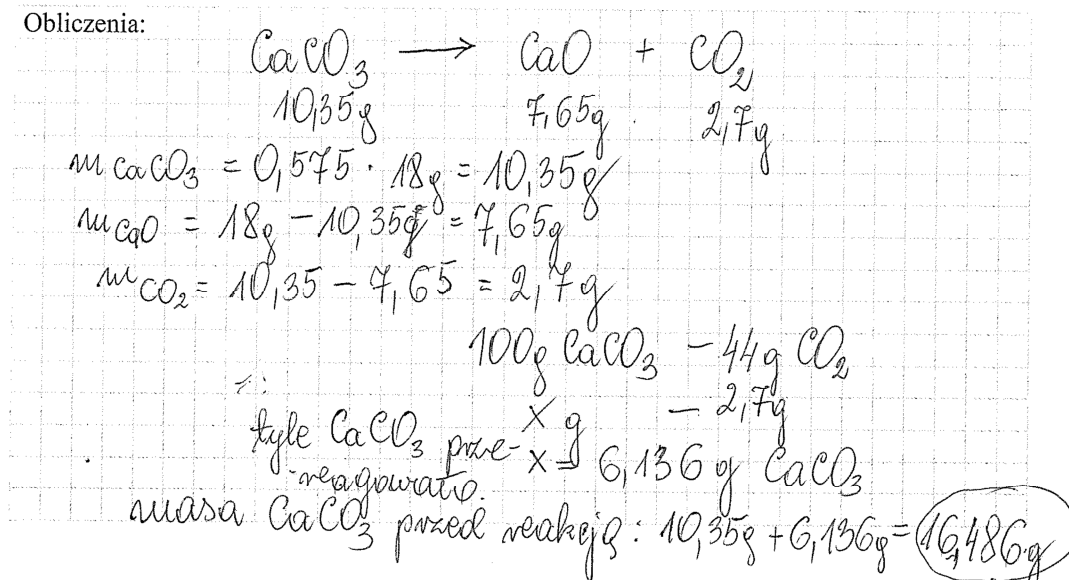 Obliczenia:
CaCO₃ → CaO + CO₂
10,35g 7,65g 2,7g
m CaCO₃ = 0,575 · 18g = 10,35g
m CaO = 18g − 10,35g = 7,65g
m CO₂ = 10,35 − 7,65 = 2,7g
100g CaCO₃ − 44g CO₂
x g − 2,7g
tyle CaCO₃ prze- x = 6,136 g CaCO₃
reagowało.
masa CaCO₃ przed reakcją: 10,35g + 6,136g = 16,486g